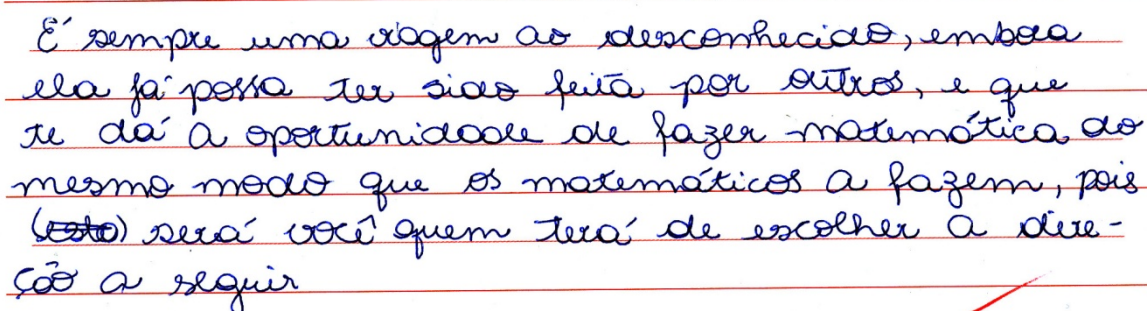 É sempre uma viagem ao desconhecido, embora
ela já possa ter sido feita por outros, e que
te dá a oportunidade de fazer matemática do
mesmo modo que os matemáticos a fazem, pois
(esto) será você quem terá de escolher a dire-
ção a seguir